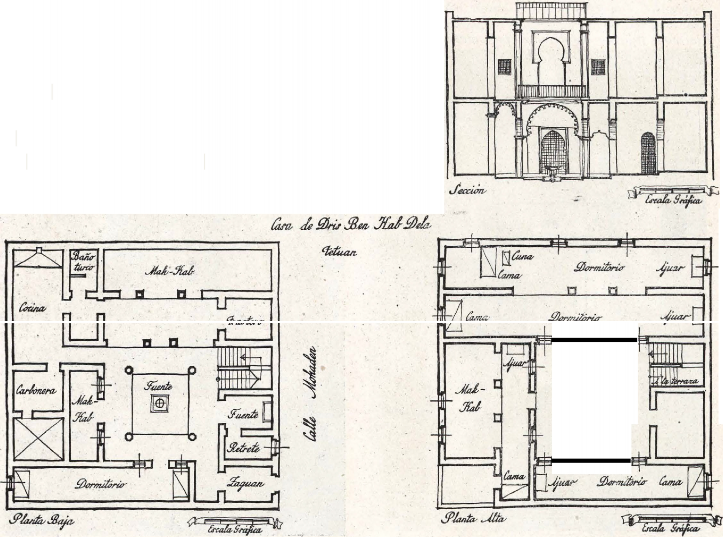 Sección
Escala Gráfica
Casa de Dris Ben Hab Dela
Tetuan
Calle Mohaden
Baño
turco
Mak-Kab
Cocina
Carbonera
Mak-
Kab
Fuente
Fuente
Retrete
Zaguan
Dormitorio
Planta Baja
Escala Gráfica
Cuna
Cama
Dormitorio
Ajuar
Cama
Dormitorio
Ajuar
Mak-
Kab
Ajuar
a la terraza
Cama
Ajuar
Dormitorio
Cama
Planta Alta
Escala Gráfica